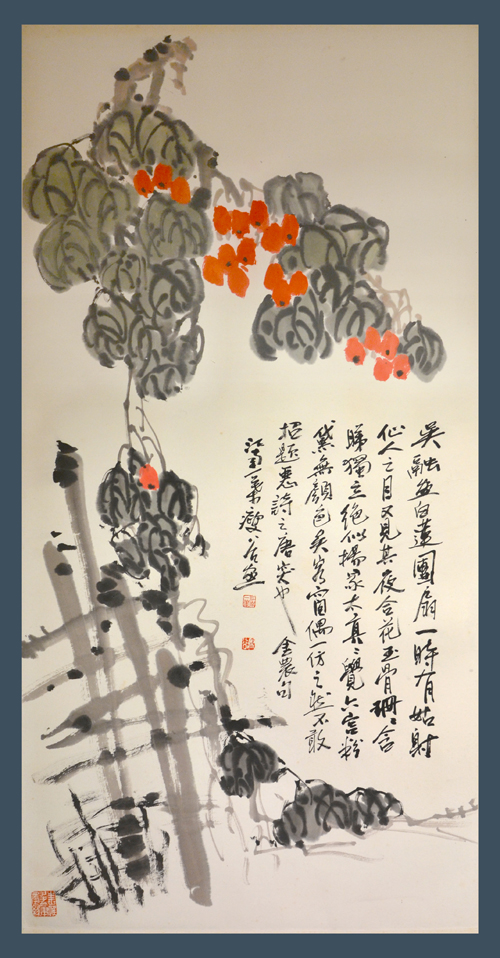 吳融画白蓮團扇一時有姑射
仙人之目又見其夜合花玉骨珊〻含
睇獨立絕似楊家太真〻覺六宮粉
黛無顏色矣客窗偶一仿之然不敢
招題惡詩之唐突也 金農句
江南瘦谷画